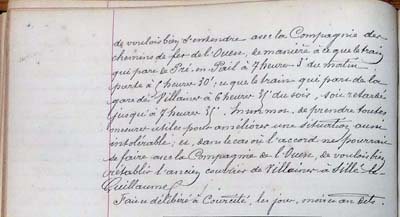 de vouloir bien s'entendre avec la Compagnie des
chemins de fer de l'Ouest, de manière à ce que le train
qui part de Pré-en-Pail à 7 heures 3' du matin
parte à 5 heures 30'; et que le train qui part de la
gare de Villaines à 6 heures 31' du soir, soit retardé
jusqu'à 7 heures 31'. de prendre toutes
mesures utiles pour améliorer une situation aussi
intolérable; et, dans le cas où l'accord ne pourrait
se faire avec la Compagnie de l'Ouest, de vouloir bien
rétablir l'ancien courrier de Villaines à Sillé-le-
Guillaume.
Fait et délibéré à Courcité, les jour, mois et an dits.